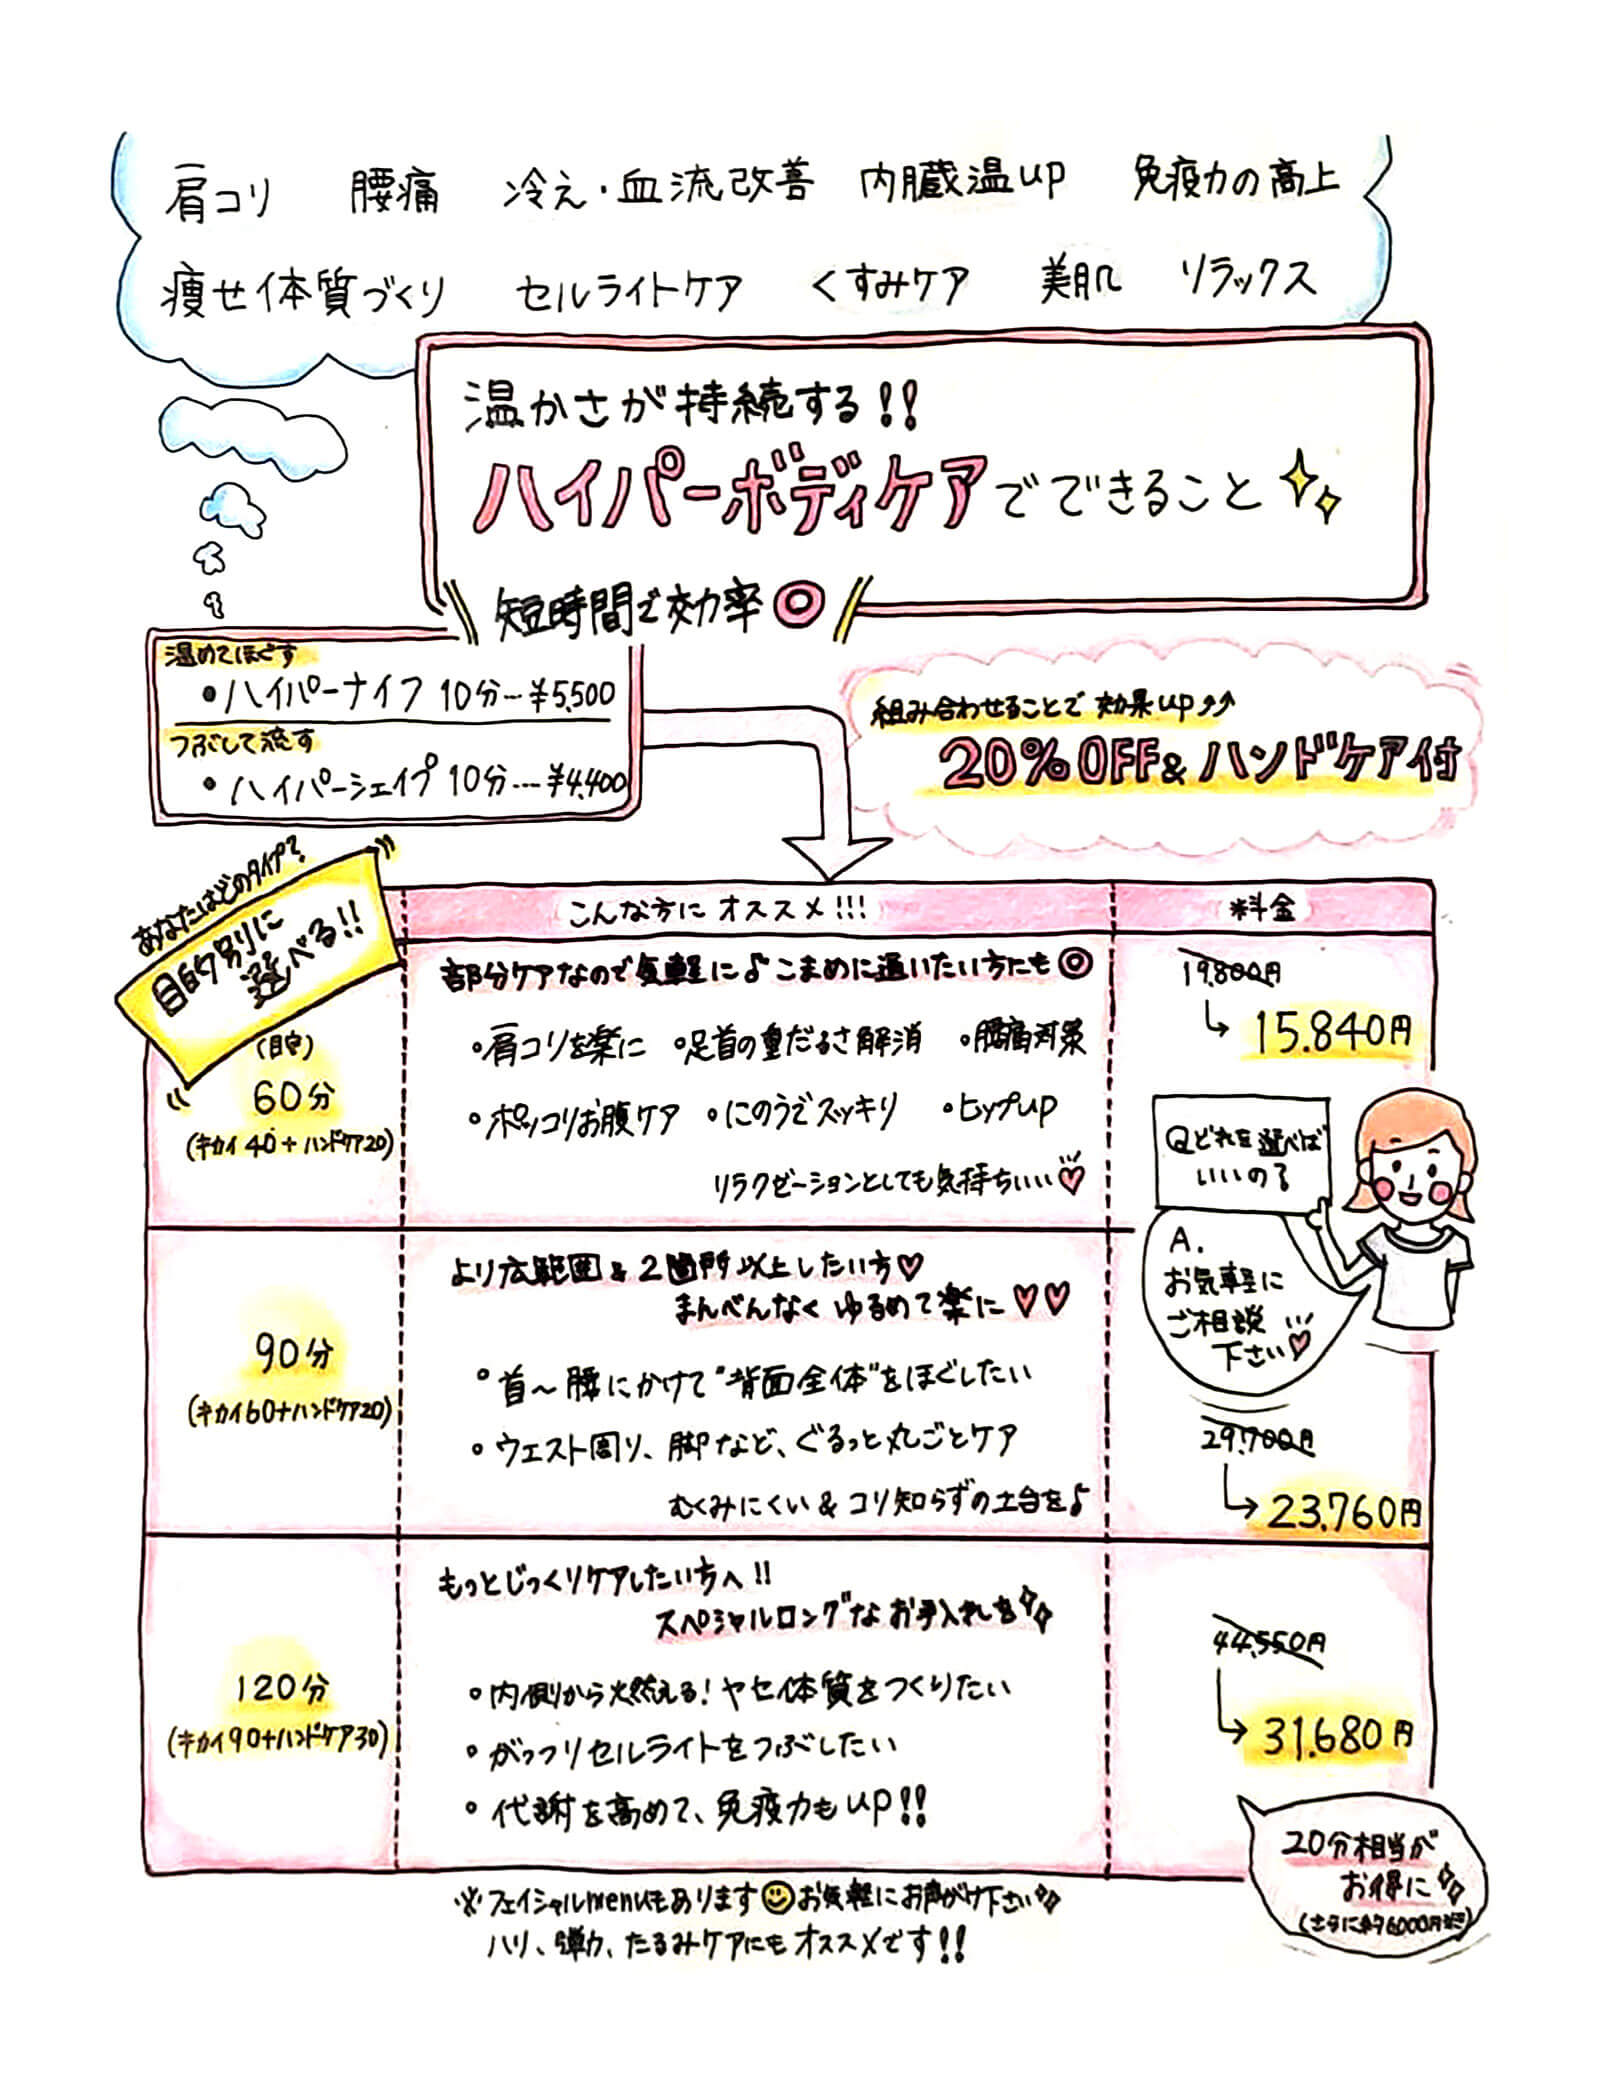 肩コリ 腰痛 冷え・血流改善 内臓温up 免疫力の高上
痩せ体質づくり セルライトケア くすみケア 美肌 リラックス
温かさが持続する!!
ハイパーボディケアでできること
短時間で効率◎
温めてほぐす
・ハイパーナイフ 10分…¥5,500
つぶして流す
・ハイパーシェイプ 10分…¥4,400
組み合わせることで効果up↑↑
20%OFF&ハンドケア付
あなたはどのタイプ?
目的別に
選べる!!
こんな方にオススメ!!!
料金
(目安)
60分
(キカイ40+ハンドケア20)
部分ケアなので気軽に♪こまめに通いたい方にも◎
・肩コリを楽に ・足首の重だるさ解消 ・腰痛対策
・ポッコリお腹ケア ・にのうでスッキリ ・ヒップup
リラクゼーションとしても気持ちいい♡
19.800円
↳ 15.840円
Qどれを選べば
いいの?
A.
お気軽に
ご相談
下さい♡
90分
(キカイ60+ハンドケア20)
より広範囲&2箇所以上したい方♡
まんべんなくゆるめて楽に♡♡
・首〜腰にかけて"背面全体"をほぐしたい
・ウエスト周り、脚など、ぐるっと丸ごとケア
むくみにくい&コリ知らずの土台を♪
29.700円
↳ 23.760円
120分
(キカイ90+ハンドケア30)
もっとじっくりケアしたい方へ!!
スペシャルロングなお手入れを
・内側から燃える!ヤセ体質をつくりたい
・がっつりセルライトをつぶしたい
・代謝を高めて、免疫力もup!!
44,550円
↳ 31.680円
20分相当が
お得に
(さらに約6000円
※フェイシャルmenuもあります お気軽にお声がけ下さい
ハリ、弾力、たるみケアにもオススメです!!